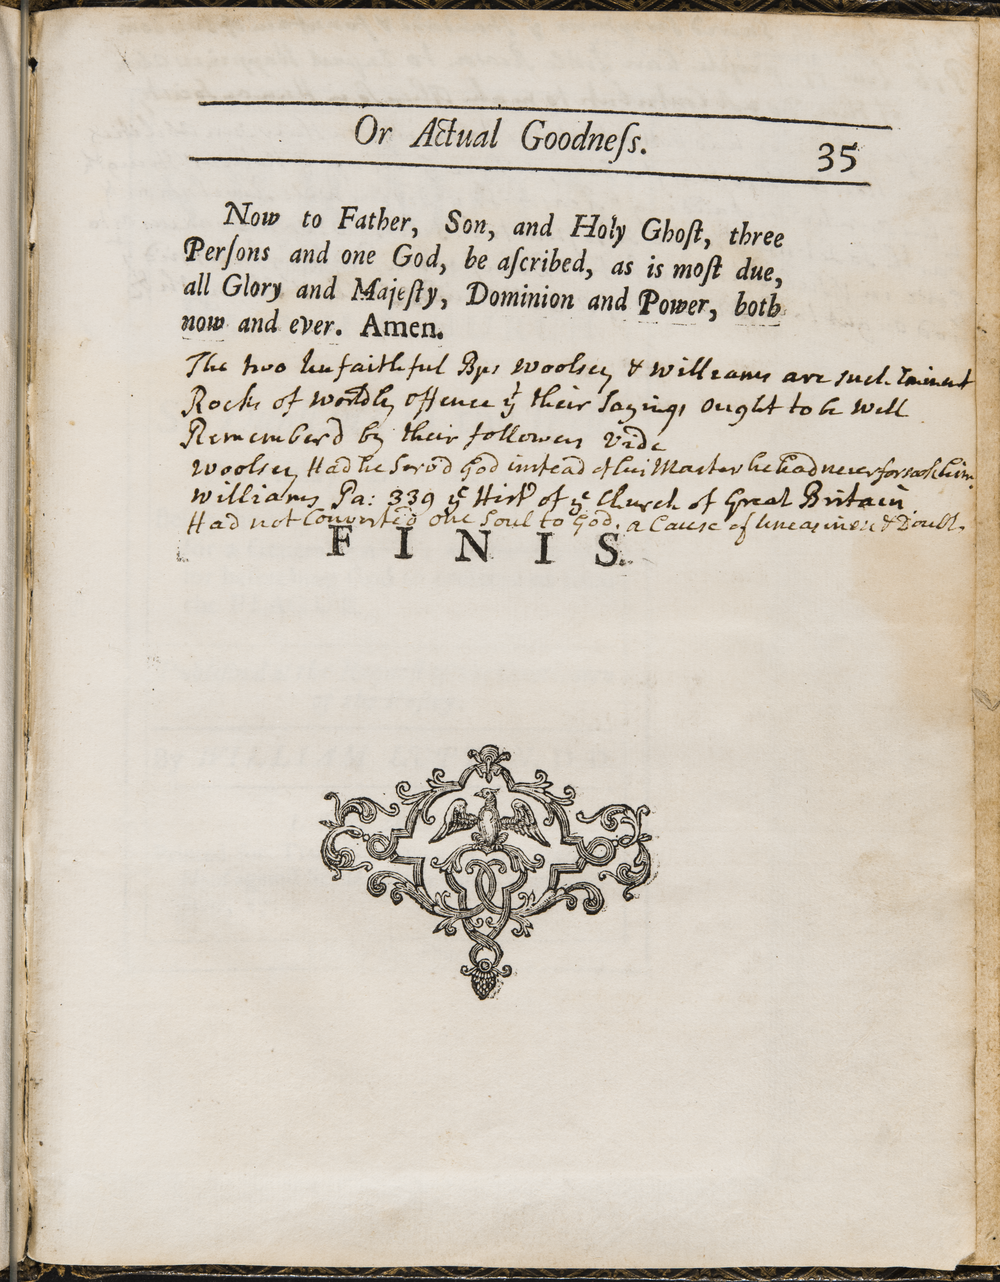 Or Actual Goodneſs.
35
Now to Father, Son, and Holy Ghoſt, three
Perſons and one God, be aſcribed, as is moſt due,
all Glory and Majeſty, Dominion and Power, both
now and ever. Amen.
The two Unfaithful Bps Woolsey & Williams are such Eminent
Rocks of Worldly offence yt their Sayings ought to be Well
Rememberd by their followers Vide
Woolsey Had he Serv'd God instead of his Master he had never forsook him
Williams Pa: 339 ye Histy of ye Church of Great Britain
Had not Converted one Soul to God, a Cause of Uneasiness & Doubt.
FINIS.